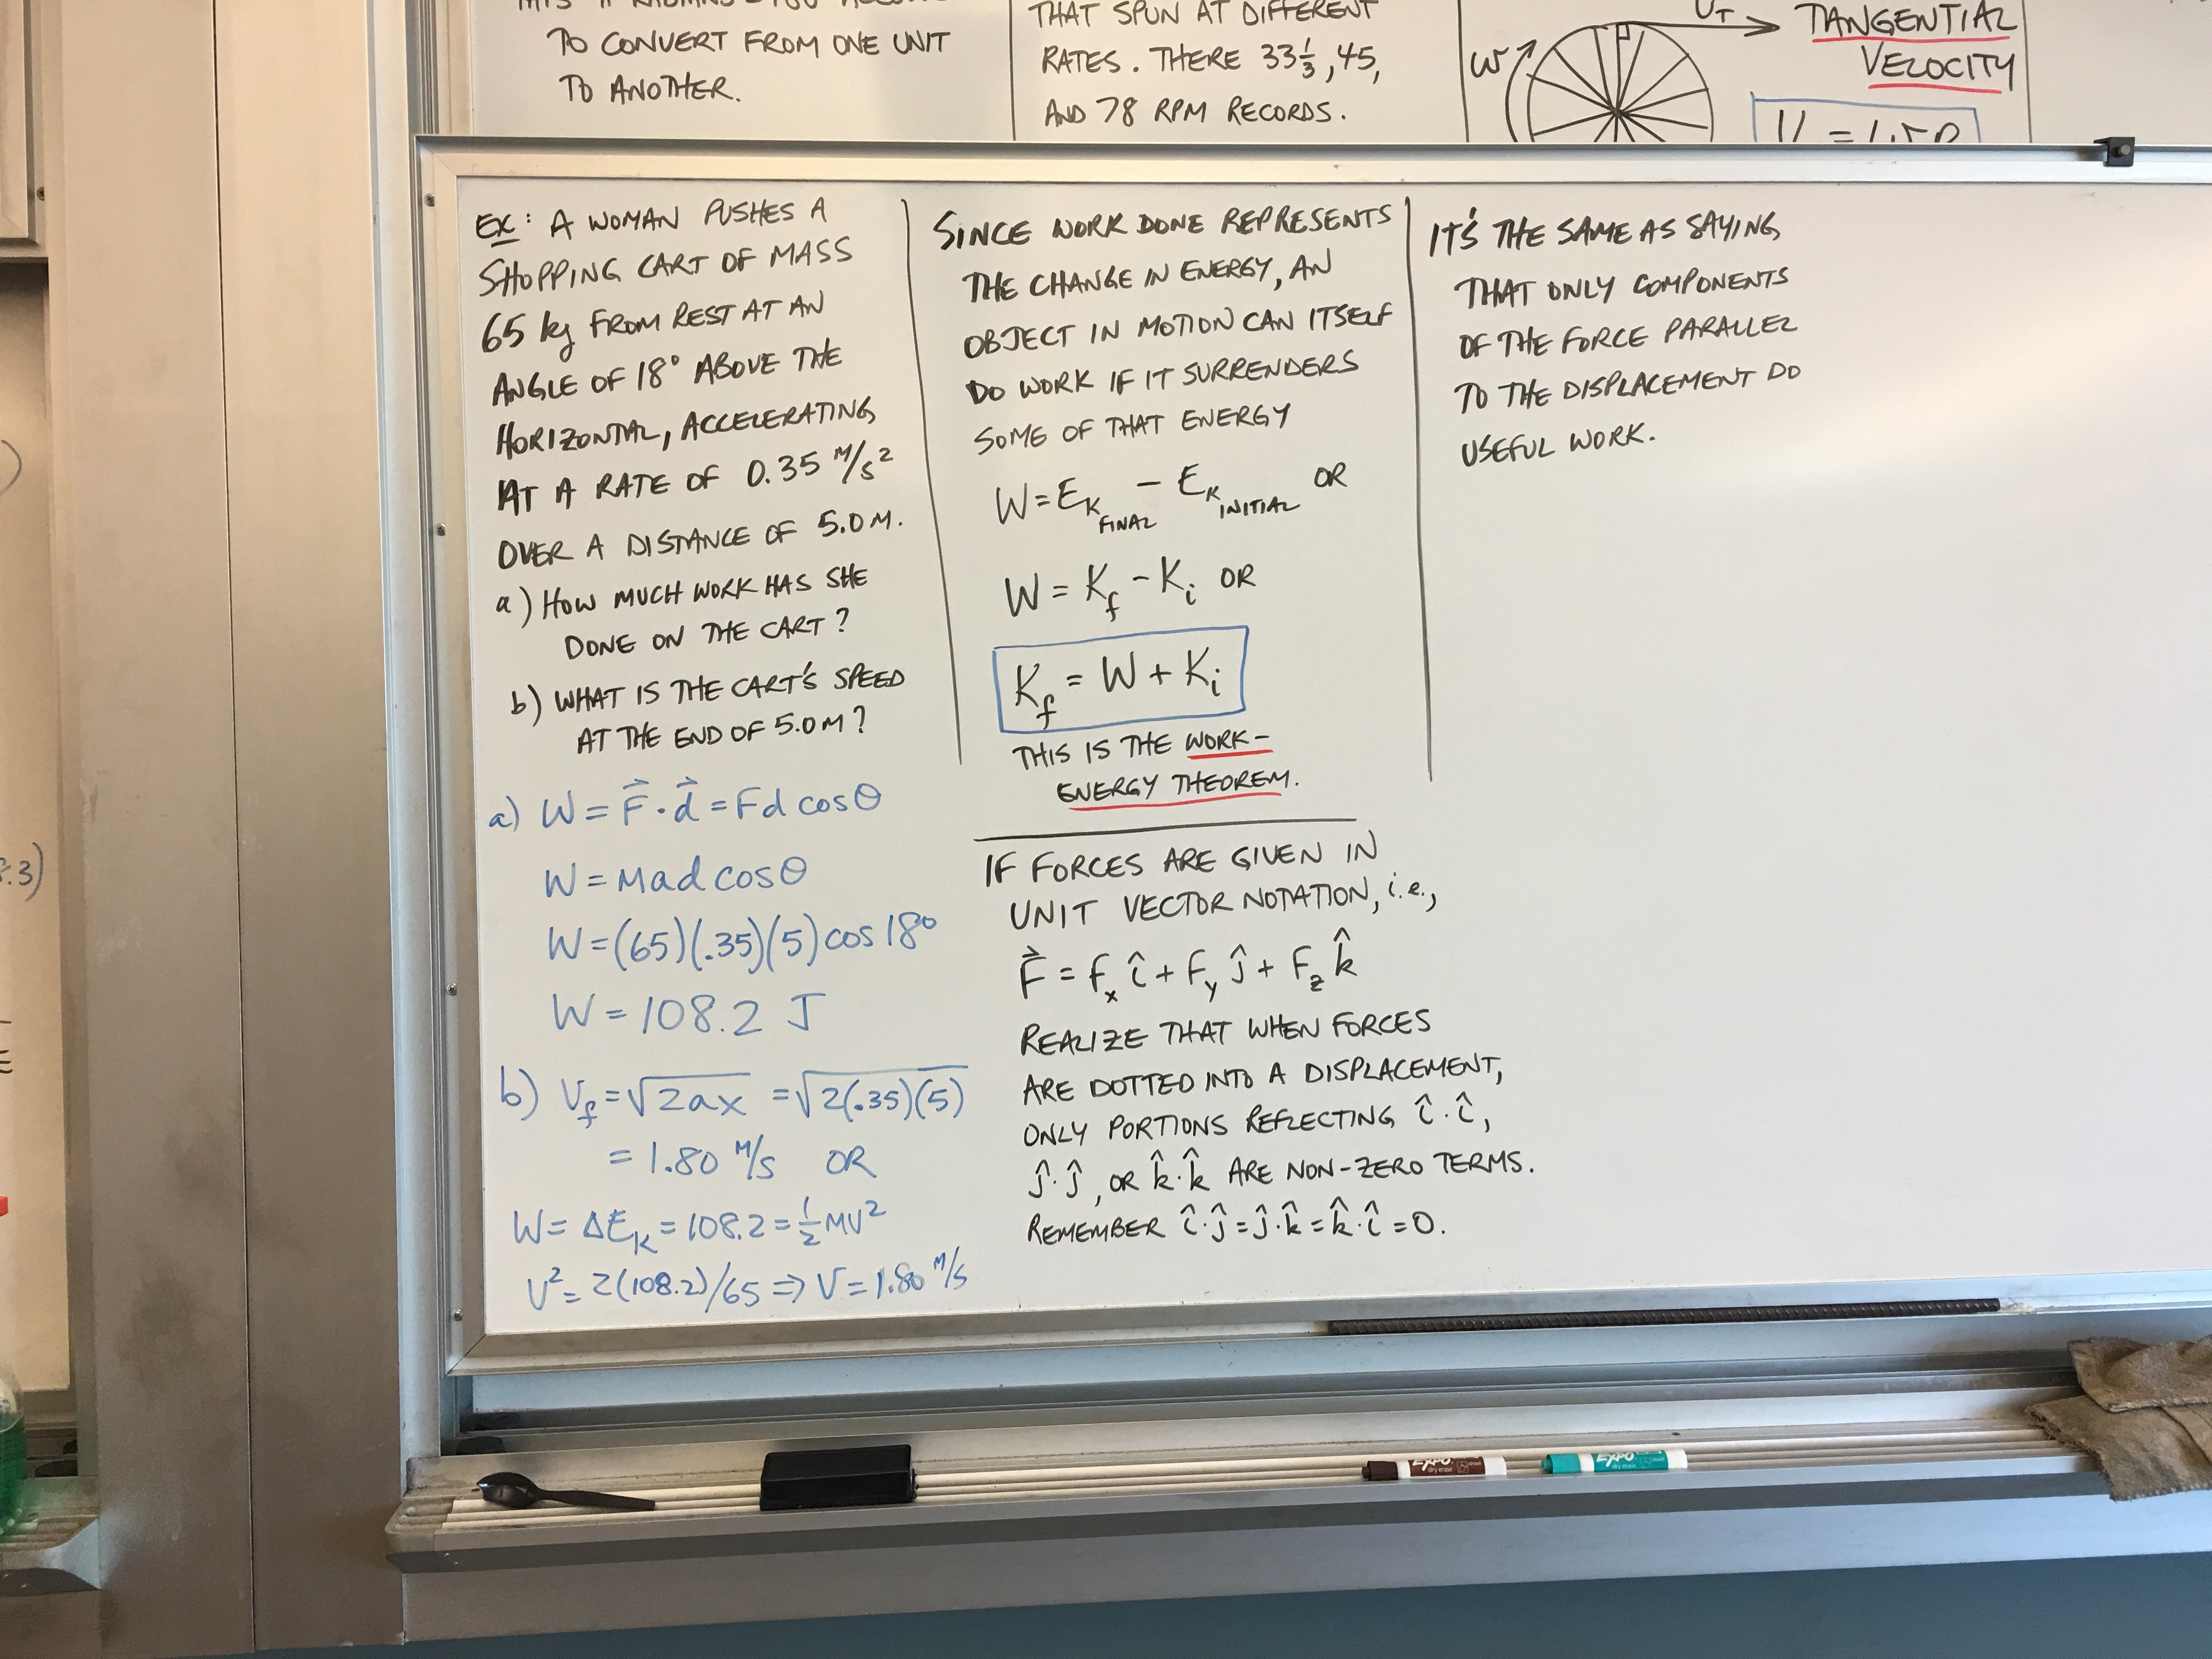 TO CONVERT FROM ONE UNIT
TO ANOTHER.
THAT SPUN AT DIFFERENT
RATES. THERE 33 1/3, 45,
AND 78 RPM RECORDS.
ω
V_T
TANGENTIAL
VELOCITY
EX: A WOMAN PUSHES A
SHOPPING CART OF MASS
65 kg FROM REST AT AN
ANGLE OF 18° ABOVE THE
HORIZONTAL, ACCELERATING
AT A RATE OF 0.35 M/S²
OVER A DISTANCE OF 5.0 M.
a) HOW MUCH WORK HAS SHE
DONE ON THE CART?
b) WHAT IS THE CART'S SPEED
AT THE END OF 5.0 M?
a) W = F⃗ · d⃗ = Fd cosθ
W = Mad cosθ
W = (65)(.35)(5) cos 18°
W = 108.2 J
b) V_f = √2ax = √2(.35)(5)
= 1.80 M/S OR
W = ΔE_K = 108.2 = 1/2 MV²
V² = 2(108.2)/65 ⇒ V = 1.80 M/S
SINCE WORK DONE REPRESENTS
THE CHANGE IN ENERGY, AN
OBJECT IN MOTION CAN ITSELF
DO WORK IF IT SURRENDERS
SOME OF THAT ENERGY
W = E_K FINAL − E_K INITIAL OR
W = K_f − K_i OR
K_f = W + K_i
THIS IS THE WORK-
ENERGY THEOREM.
IF FORCES ARE GIVEN IN
UNIT VECTOR NOTATION, i.e.,
F⃗ = F_x î + F_y ĵ + F_z k̂
REALIZE THAT WHEN FORCES
ARE DOTTED INTO A DISPLACEMENT,
ONLY PORTIONS REFLECTING î · î,
ĵ · ĵ, OR k̂ · k̂ ARE NON-ZERO TERMS.
REMEMBER î · ĵ = ĵ · k̂ = k̂ · î = 0.
IT'S THE SAME AS SAYING
THAT ONLY COMPONENTS
OF THE FORCE PARALLEL
TO THE DISPLACEMENT DO
USEFUL WORK.
EXPO
dry erase
EXPO
dry erase